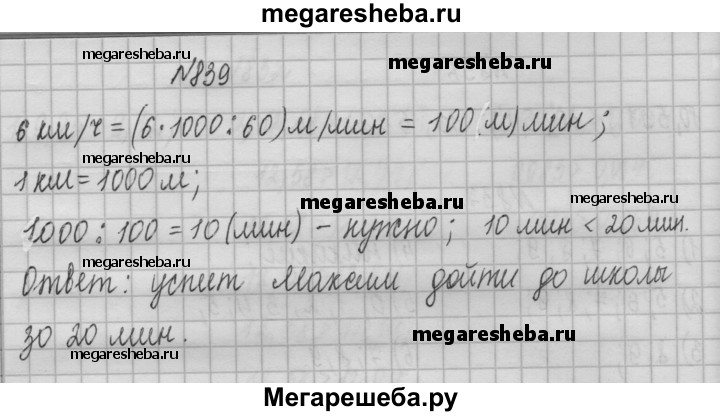 megaresheba.ru
megaresheba.ru
№839
megaresheba.ru
6 км/ч = (6·1000:60) м/мин = 100 (м) мин;
megaresheba.ru
1 км = 1000 м;
megaresheba.ru
megaresheba.ru
1000 : 100 = 10 (мин) – нужно; 10 мин < 20 мин.
megaresheba.ru
Ответ: успит Максим дойти до школы
зо 20 мин.
megaresheba.ru
megaresheba.ru
Мегарешеба.ру